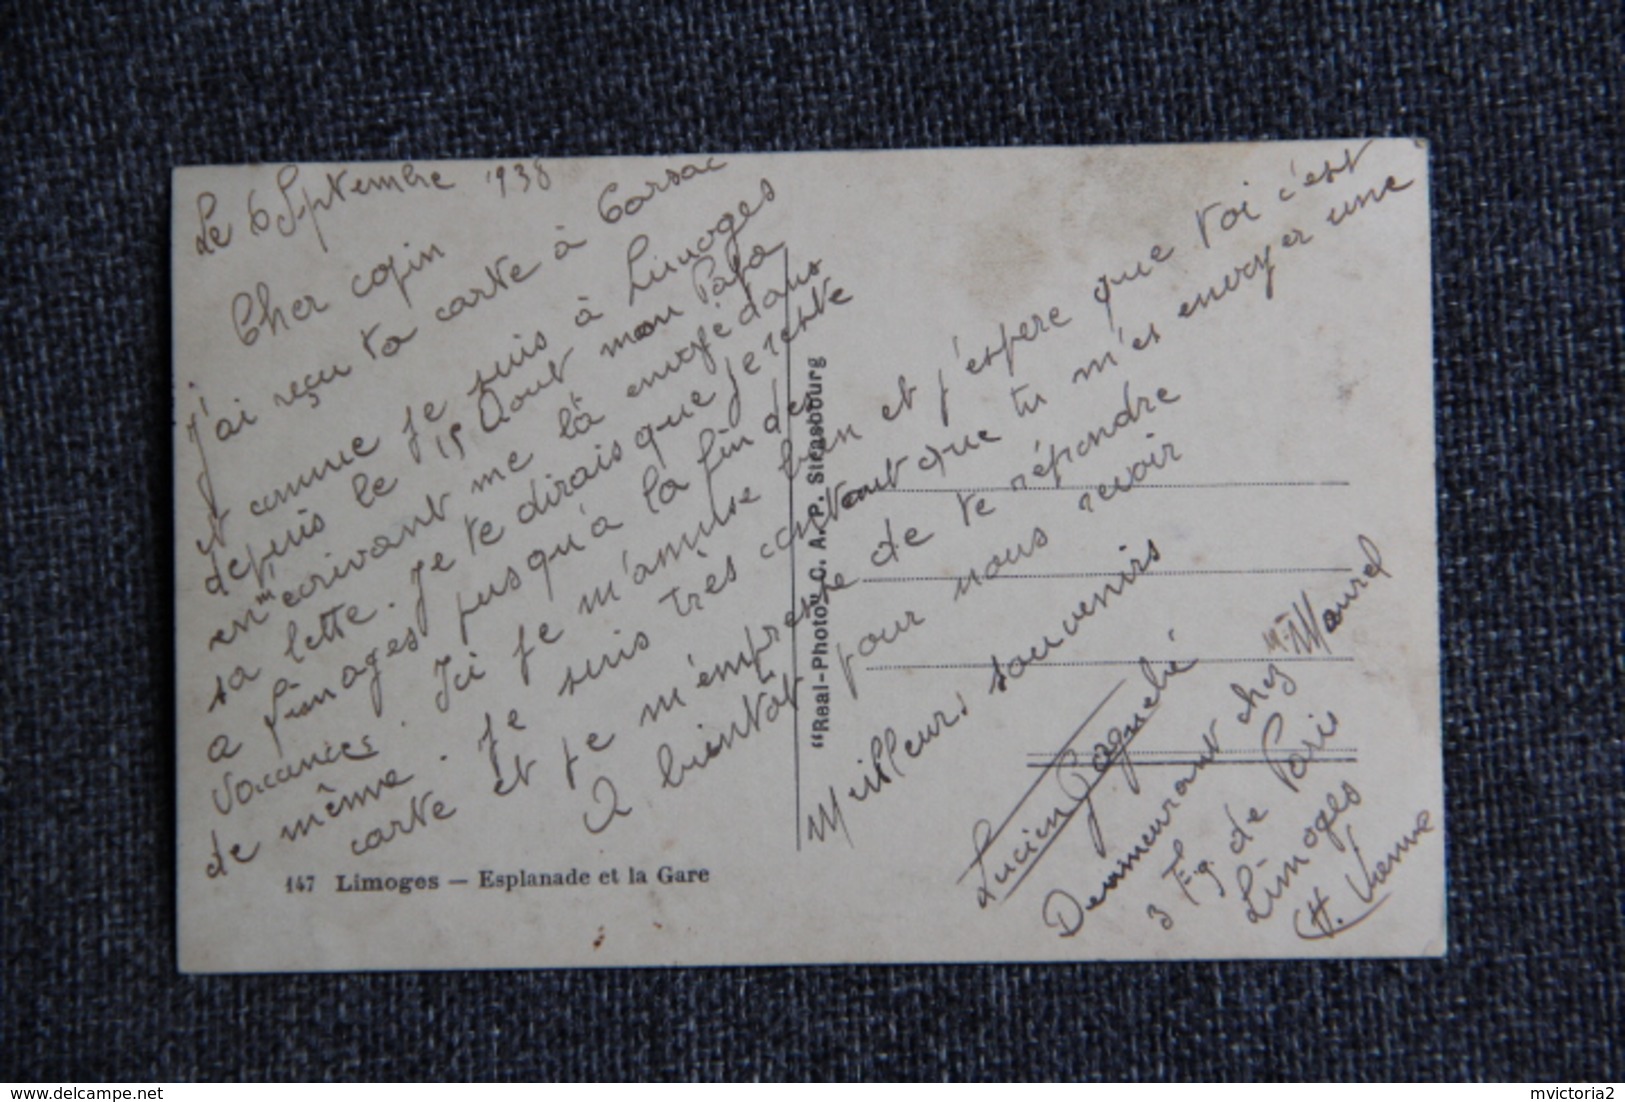 Le 6 Septembre 1938
Cher copin
J'ai reçu ta carte à Carsac
et comme je suis à Limoges
depuis le 15 Aout mon Papa
en m'écrivant me là envoyé dans
sa lettre. Je te dirais que je reste
a Limoges jusqu'à la fin des
vacances. Ici je m'amuse bien et j'espere que toi c'est
de même. Je suis très content que tu m'es envoyer une
carte et je m'empresse de te répondre
A bientot pour nous revoir
Meilleurs souvenirs
Lucien
Demeurant chez Mr Maurel
3 Fg de Paris
Limoges
H. Vienne
147 Limoges — Esplanade et la Gare
"Real-Photo" C. A. P. Strasbourg
delcampe.net
mvictoria2